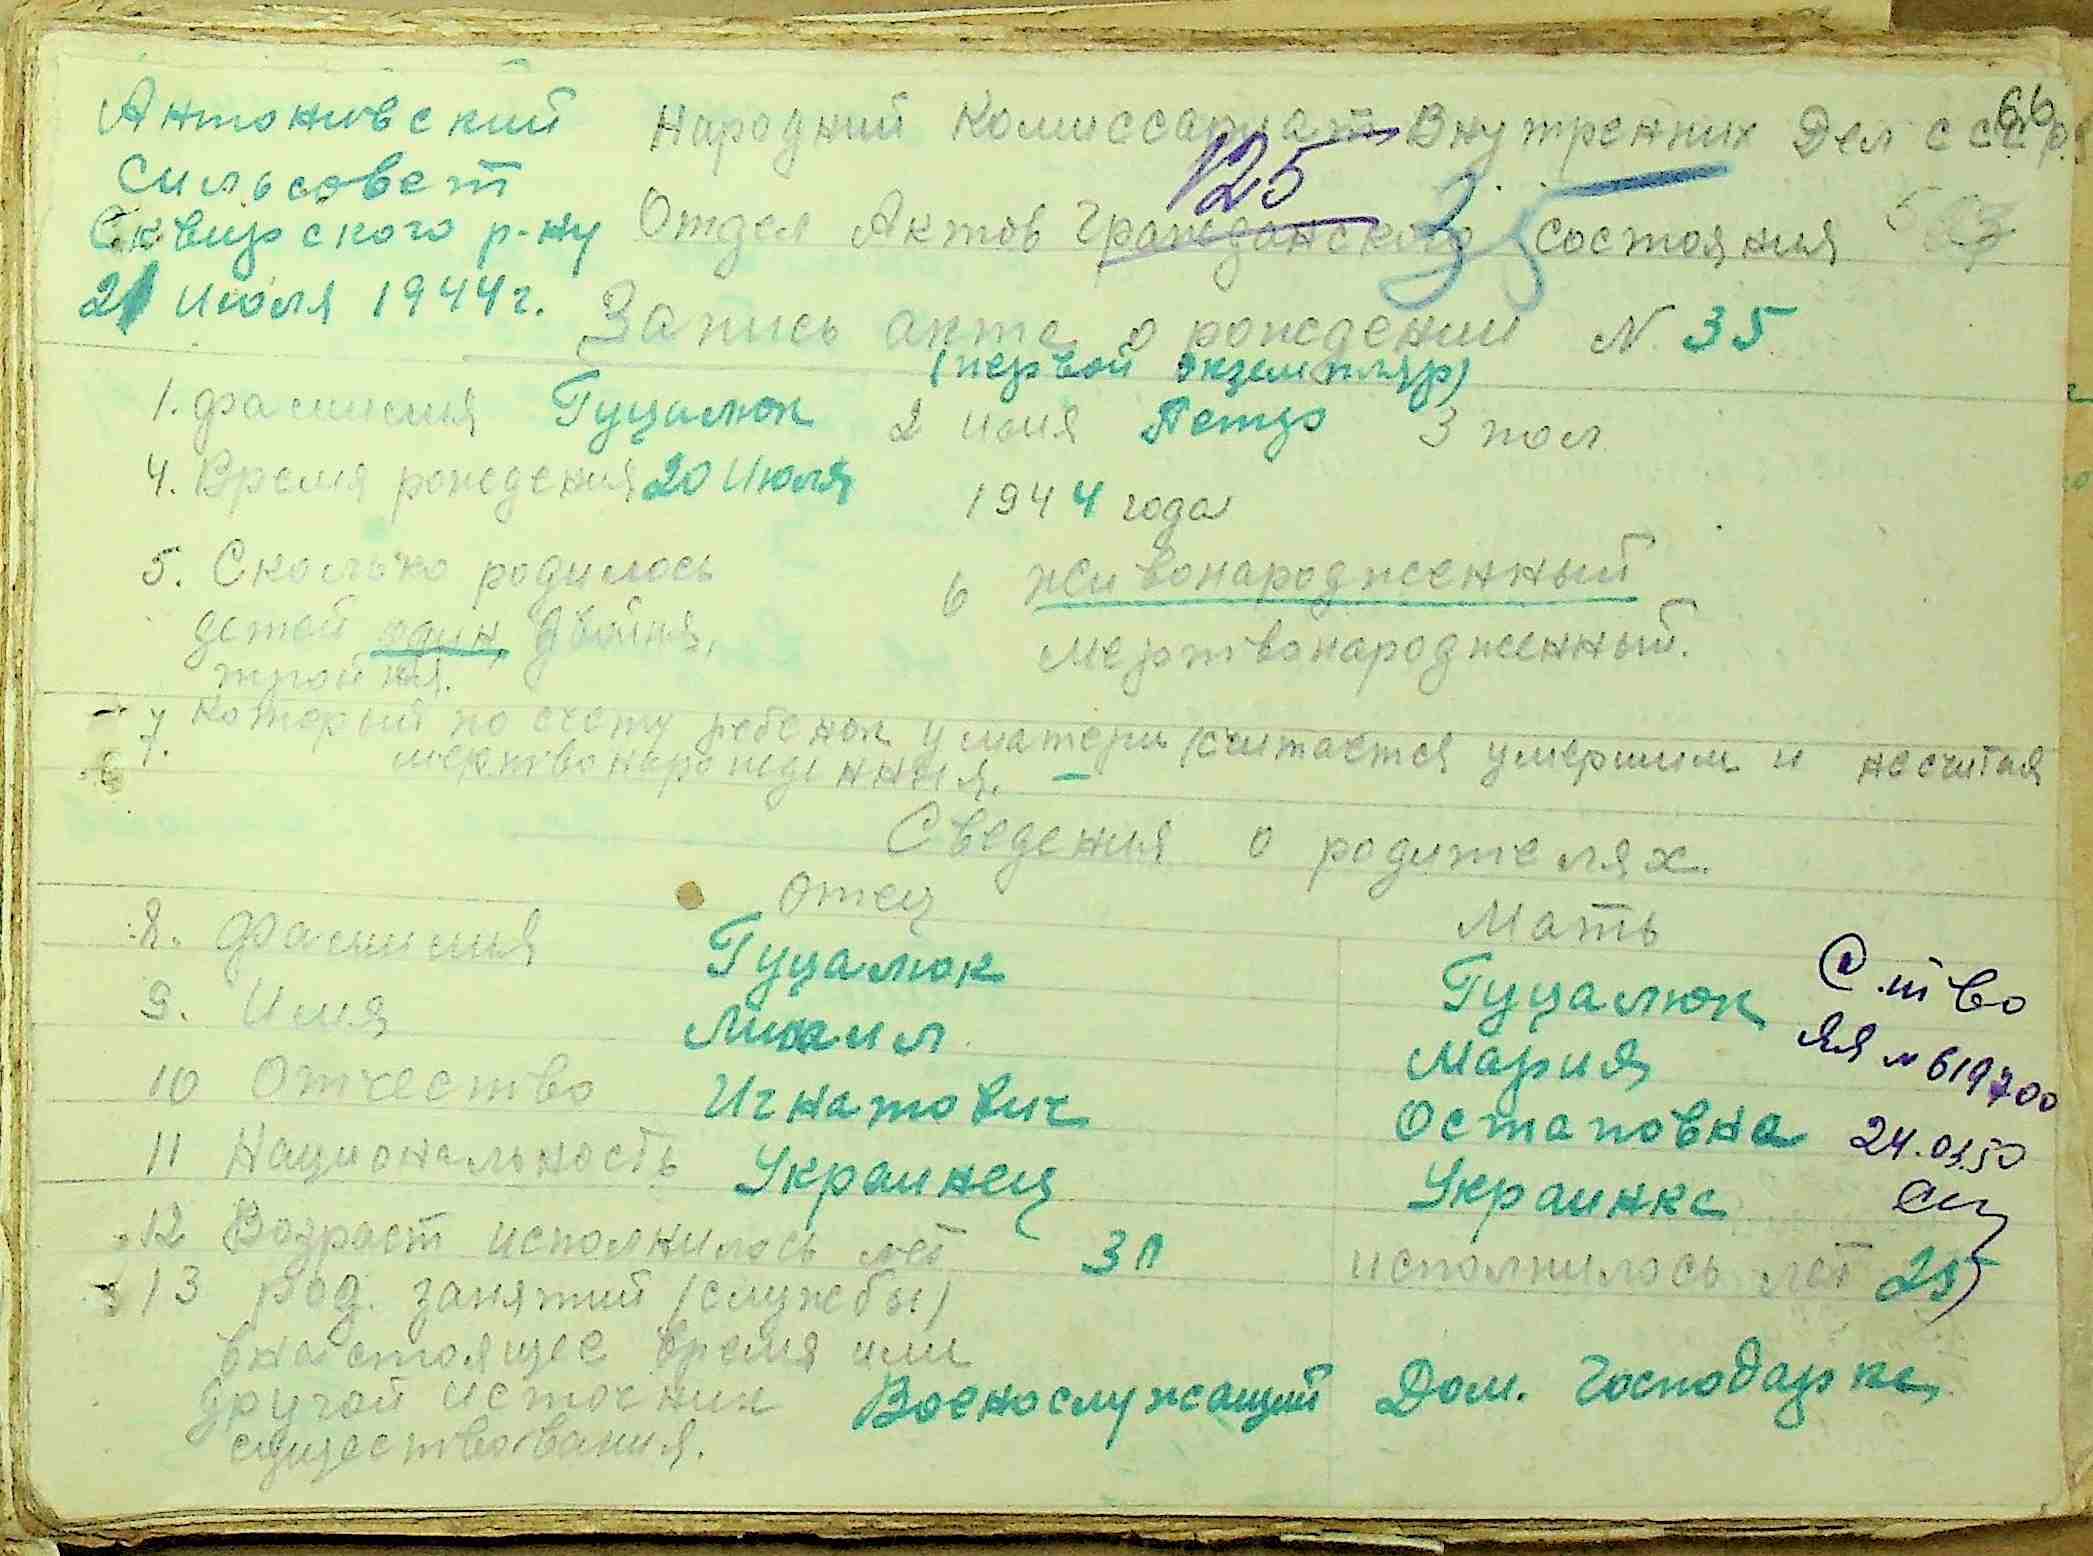 Антоновский
Сильсовет
Сквирского р-ну
21 июля 1944 г.
66
Народний Комиссариат Внутренних Дел СССР.
125
Отдел Актов Гражданского состояния
35
Запись акта о рождении N 35
(первой экземпляр)
1. фамилия Гуцалюк 2 имя Петро 3 пол
4. Время рождения 20 июля 1944 года
5. Сколько родилось 6 живонародженный
детей один, двойня, мертвонародженный.
тройня.
7. Который по счету ребенок у матери (считается умершим и несчитая
мертвонарожденныя. –
Сведения о родителях.
Отец Мать
8. Фамилия Гуцалюк Гуцалюк С.тво
9. Имя Михаил Мария ЯЯ № 619700
10 Отчество Игнатович Остаповна 24.03.50
11 Национальность Украинец Украинка
12 Возраст исполнилось лет исполнилось лет 25
13 род. занятий (службы)
внастоящее время или
другой источник Военослужащий Дом. Господарка
существования.